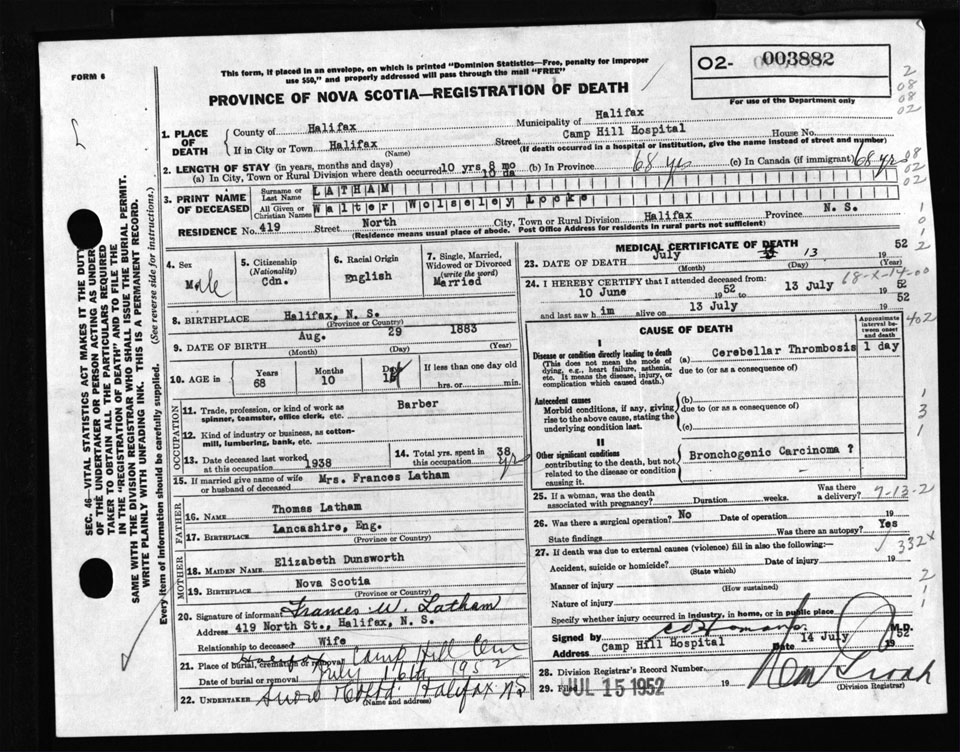 FORM 6
This form, if placed in an envelope, on which is printed "Dominion Statistics—Free, penalty for improper
use $50," and properly addressed will pass through the mail "FREE"
PROVINCE OF NOVA SCOTIA—REGISTRATION OF DEATH
02- 003882
For use of the Department only
2
08
08
02
1. PLACE OF DEATH
County of Halifax Municipality of Halifax
If in City or Town Halifax Street Camp Hill Hospital House No.
(Name) (If death occurred in a hospital or institution, give the name instead of street and number)
2. LENGTH OF STAY (in years, months and days)
(a) In City, Town or Rural Division where death occurred 10 yrs. 8 mo 10 da (b) In Province 68 yrs (c) In Canada (if immigrant) 68 yr
08
02
02
3. PRINT NAME OF DECEASED
Surname or Last Name LATHAM
All Given or Christian Names Walter Wolseley Locke
RESIDENCE No. 419 Street North City, Town or Rural Division Halifax Province N. S.
(Residence means usual place of abode. Post Office Address for residents in rural parts not sufficient)
4. Sex Male
5. Citizenship (Nationality) Cdn.
6. Racial Origin English
7. Single, Married, Widowed or Divorced (write the word) Married
8. BIRTHPLACE Halifax, N. S.
(Province or Country)
9. DATE OF BIRTH Aug. 29 1883
(Month) (Day) (Year)
10. AGE in Years 68 Months 10 Days If less than one day old hrs. or min.
OCCUPATION
11. Trade, profession, or kind of work as spinner, teamster, office clerk, etc. Barber
12. Kind of industry or business, as cotton-mill, lumbering, bank, etc.
13. Date deceased last worked at this occupation 1938
14. Total yrs. spent in this occupation 38 yr
15. If married give name of wife or husband of deceased Mrs. Frances Latham
FATHER
16. Name Thomas Latham
17. BIRTHPLACE Lancashire, Eng.
(Province or Country)
MOTHER
18. MAIDEN NAME Elizabeth Dunsworth
19. BIRTHPLACE Nova Scotia
(Province or Country)
20. Signature of informant Frances W. Latham
Address 419 North St., Halifax, N. S.
Relationship to deceased Wife
21. Place of burial, cremation or removal Camp Hill Cem
Date of burial or removal July 16th 1952
22. UNDERTAKER Snow Halifax NS
(Name and address)
MEDICAL CERTIFICATE OF DEATH
23. DATE OF DEATH July 13 19 52
(Month) (Day) (Year)
24. I HEREBY CERTIFY that I attended deceased from:
10 June 19 52 to 13 July 19 52
and last saw h im alive on 13 July 19 52
CAUSE OF DEATH
Approximate interval between onset and death
I
Disease or condition directly leading to death
(This does not mean the mode of dying, e.g., heart failure, asthenia, etc. It means the disease, injury, or complication which caused death.)
(a) Cerebellar Thrombosis 1 day
due to (or as a consequence of)
Antecedent causes
Morbid conditions, if any, giving rise to the above cause, stating the underlying condition last.
(b)
due to (or as a consequence of)
(c)
II
Other significant conditions
contributing to the death, but not related to the disease or condition causing it.
Bronchogenic Carcinoma ?
25. If a woman, was the death associated with pregnancy? Duration weeks. Was there a delivery?
7-13-2
26. Was there a surgical operation? No Date of operation 19
State findings Was there an autopsy? Yes
332x
27. If death was due to external causes (violence) fill in also the following:—
Accident, suicide or homicide? Date of injury 19
(State which)
Manner of injury
(How sustained)
Nature of injury
Specify whether injury occurred in industry, in home, or in public place
Signed by M.D.
Address Camp Hill Hospital Date 14 July 19 52
28. Division Registrar's Record Number
29. Filed JUL 15 1952 19
(Division Registrar)
SEC. 46—VITAL STATISTICS ACT MAKES IT THE DUTY
OF THE UNDERTAKER OR PERSON ACTING AS UNDER-
TAKER TO OBTAIN ALL THE PARTICULARS REQUIRED
IN THE "REGISTRATION OF DEATH" AND TO FILE THE
SAME WITH THE DIVISION REGISTRAR WHO SHALL ISSUE THE BURIAL PERMIT.
WRITE PLAINLY WITH UNFADING INK. THIS IS A PERMANENT RECORD.
Every item of information should be carefully supplied. (See reverse side for instructions.)